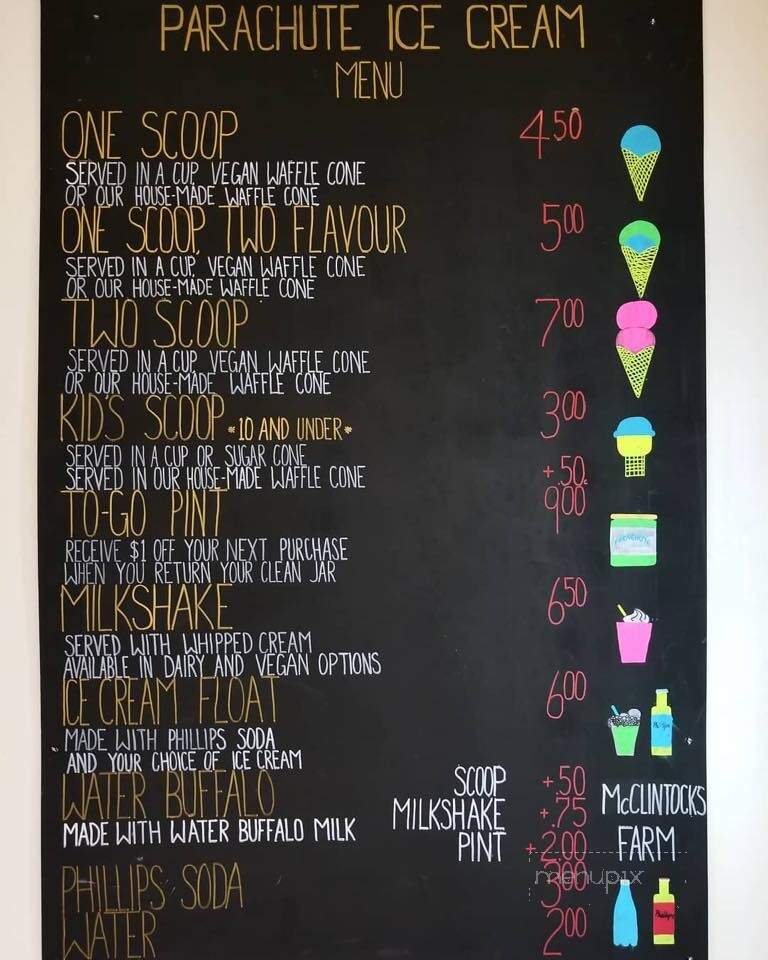 PARACHUTE ICE CREAM
MENU
ONE SCOOP 4.50
SERVED IN A CUP, VEGAN WAFFLE CONE
OR OUR HOUSE-MADE WAFFLE CONE
ONE SCOOP, TWO FLAVOUR 5.00
SERVED IN A CUP, VEGAN WAFFLE CONE
OR OUR HOUSE-MADE WAFFLE CONE
TWO SCOOP 7.00
SERVED IN A CUP, VEGAN WAFFLE CONE
OR OUR HOUSE-MADE WAFFLE CONE
KID'S SCOOP *10 AND UNDER* 3.00
SERVED IN A CUP OR SUGAR CONE
SERVED IN OUR HOUSE-MADE WAFFLE CONE +.50¢
TO-GO PINT 9.00
RECEIVE $1 OFF YOUR NEXT PURCHASE
WHEN YOU RETURN YOUR CLEAN JAR
MILKSHAKE 6.50
SERVED WITH WHIPPED CREAM
AVAILABLE IN DAIRY AND VEGAN OPTIONS
ICE CREAM FLOAT 6.00
MADE WITH PHILLIPS SODA
AND YOUR CHOICE OF ICE CREAM
WATER BUFFALO SCOOP +.50 McCLINTOCKS
MILKSHAKE +.75
MADE WITH WATER BUFFALO MILK PINT +2.00 FARM
menupix
PHILLIPS SODA 3.00
WATER 2.00